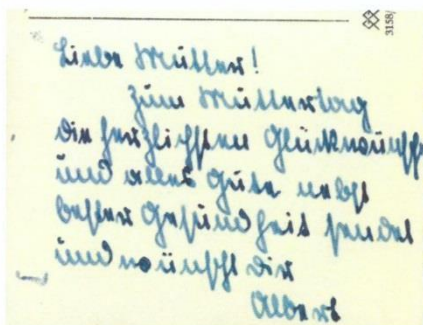 3158/
Liebe Mutter!
Zum Muttertag
die herzlichsten Glückwünsche
und alles Gute nebst
bester Gesundheit sendet
und wünscht dir
Albert